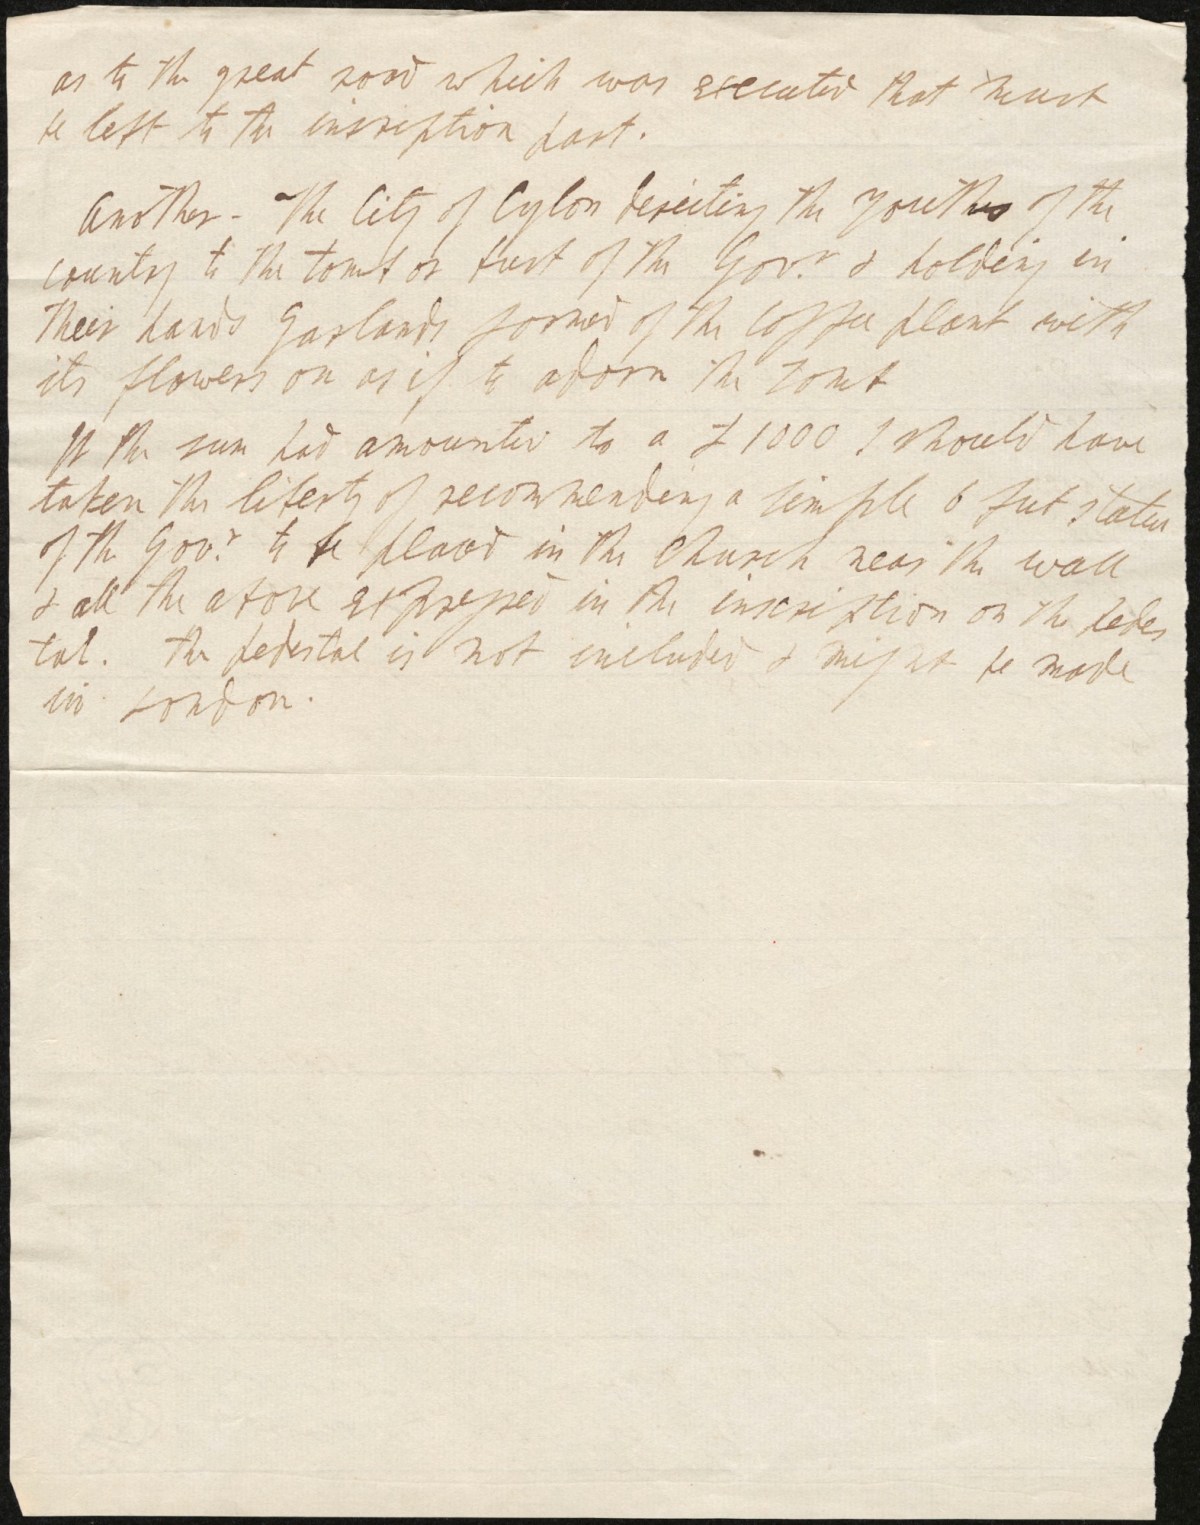 as to the great road which was executed that must
be left to the inscription part.
Another - The City of Cylon directing the youths of the
country to the tomb or bust of the Govr. & holding in
their hands Garlands formed of the Coffee plant with
its flowers on as if to adorn the tomb
If the sum had amounted to a £1000 I should have
taken the liberty of recommending a simple 6 feet statue
of the Govr. to be placed in the Church near the wall
& all the above expressed in the inscription on the pedes
tal. the pedestal is not included & might be made
in London.